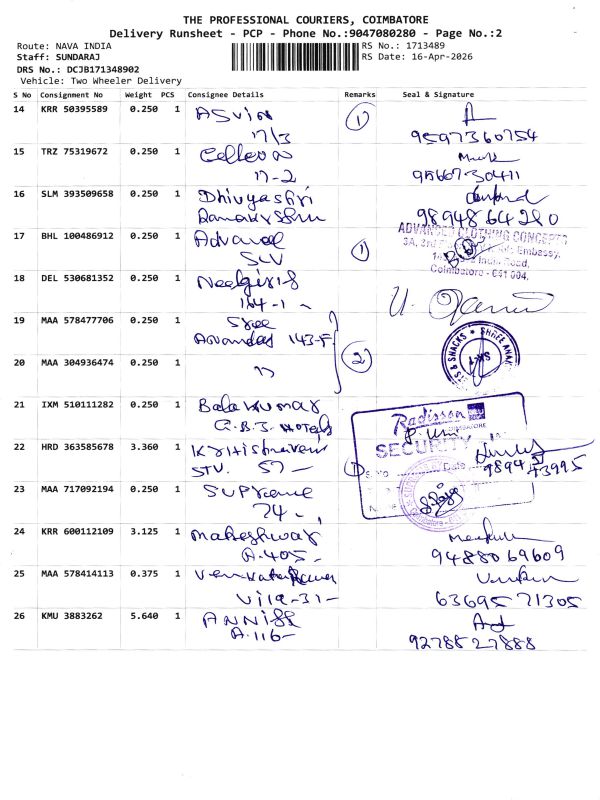 THE PROFESSIONAL COURIERS, COIMBATORE
Delivery Runsheet - PCP - Phone No.:9047080280 - Page No.:2
Route: NAVA INDIA
RS No.: 1713489
Staff: SUNDARAJ
RS Date: 16-Apr-2026
DRS No.: DCJB171348902
Vehicle: Two Wheeler Delivery
S No Consignment No Weight PCS Consignee Details Remarks Seal & Signature
14 KRR 50395589 0.250 1 Asvin 1
17/3 9597360754
15 TRZ 75319672 0.250 1
17-2
16 SLM 393509658 0.250 1 Dhivyashri
9894864280
17 BHL 100486912 0.250 1 1
ADVANCED CLOTHING CONCEPTS
Embassy,
SLV
India Road,
Coimbatore - 641 004.
18 DEL 530681352 0.250 1 Neelgiris
184-1
19 MAA 578477706 0.250 1 Sree
143-F
2
20 MAA 304936474 0.250 1 "
21 IXM 510111282 0.250 1 Balakumar
G.B.J. Hotels
Radisson BLU
SECURITY
22 HRD 363585678 3.360 1 1
STV. 57 -
S. No Date
23 MAA 717092194 0.250 1 Supreme
74 -
24 KRR 600112109 3.125 1 Maheshwar
A-405- 9488069609
25 MAA 578414113 0.375 1
Villa-31- 6369571305
26 KMU 3883262 5.640 1
A-116- 9278827888